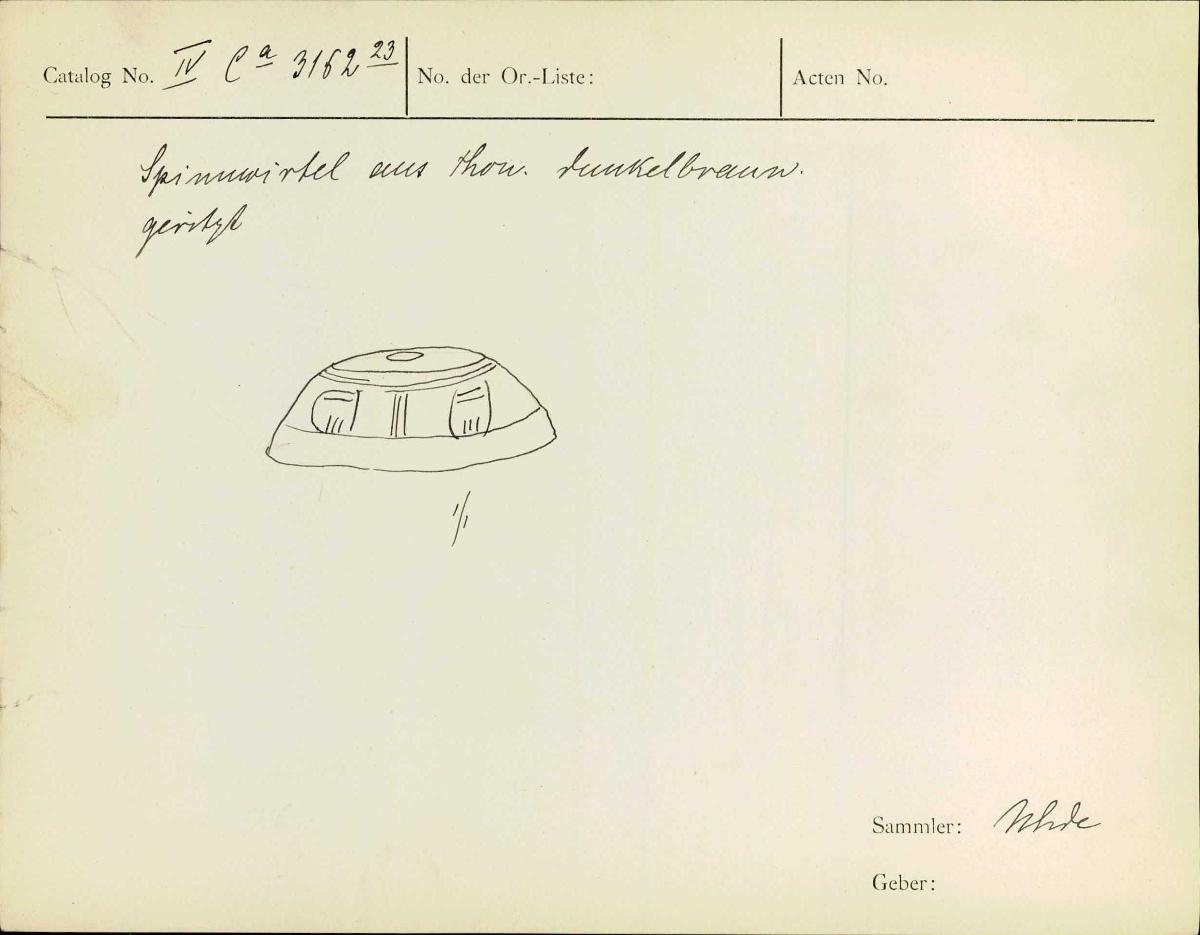 Catalog No. IV Ca 3162 23
No. der Or.-Liste:
Acten No.
Spinnwirtel aus Thon. dunkelbraun.
geritzt
1/1
Sammler: Uhde
Geber: